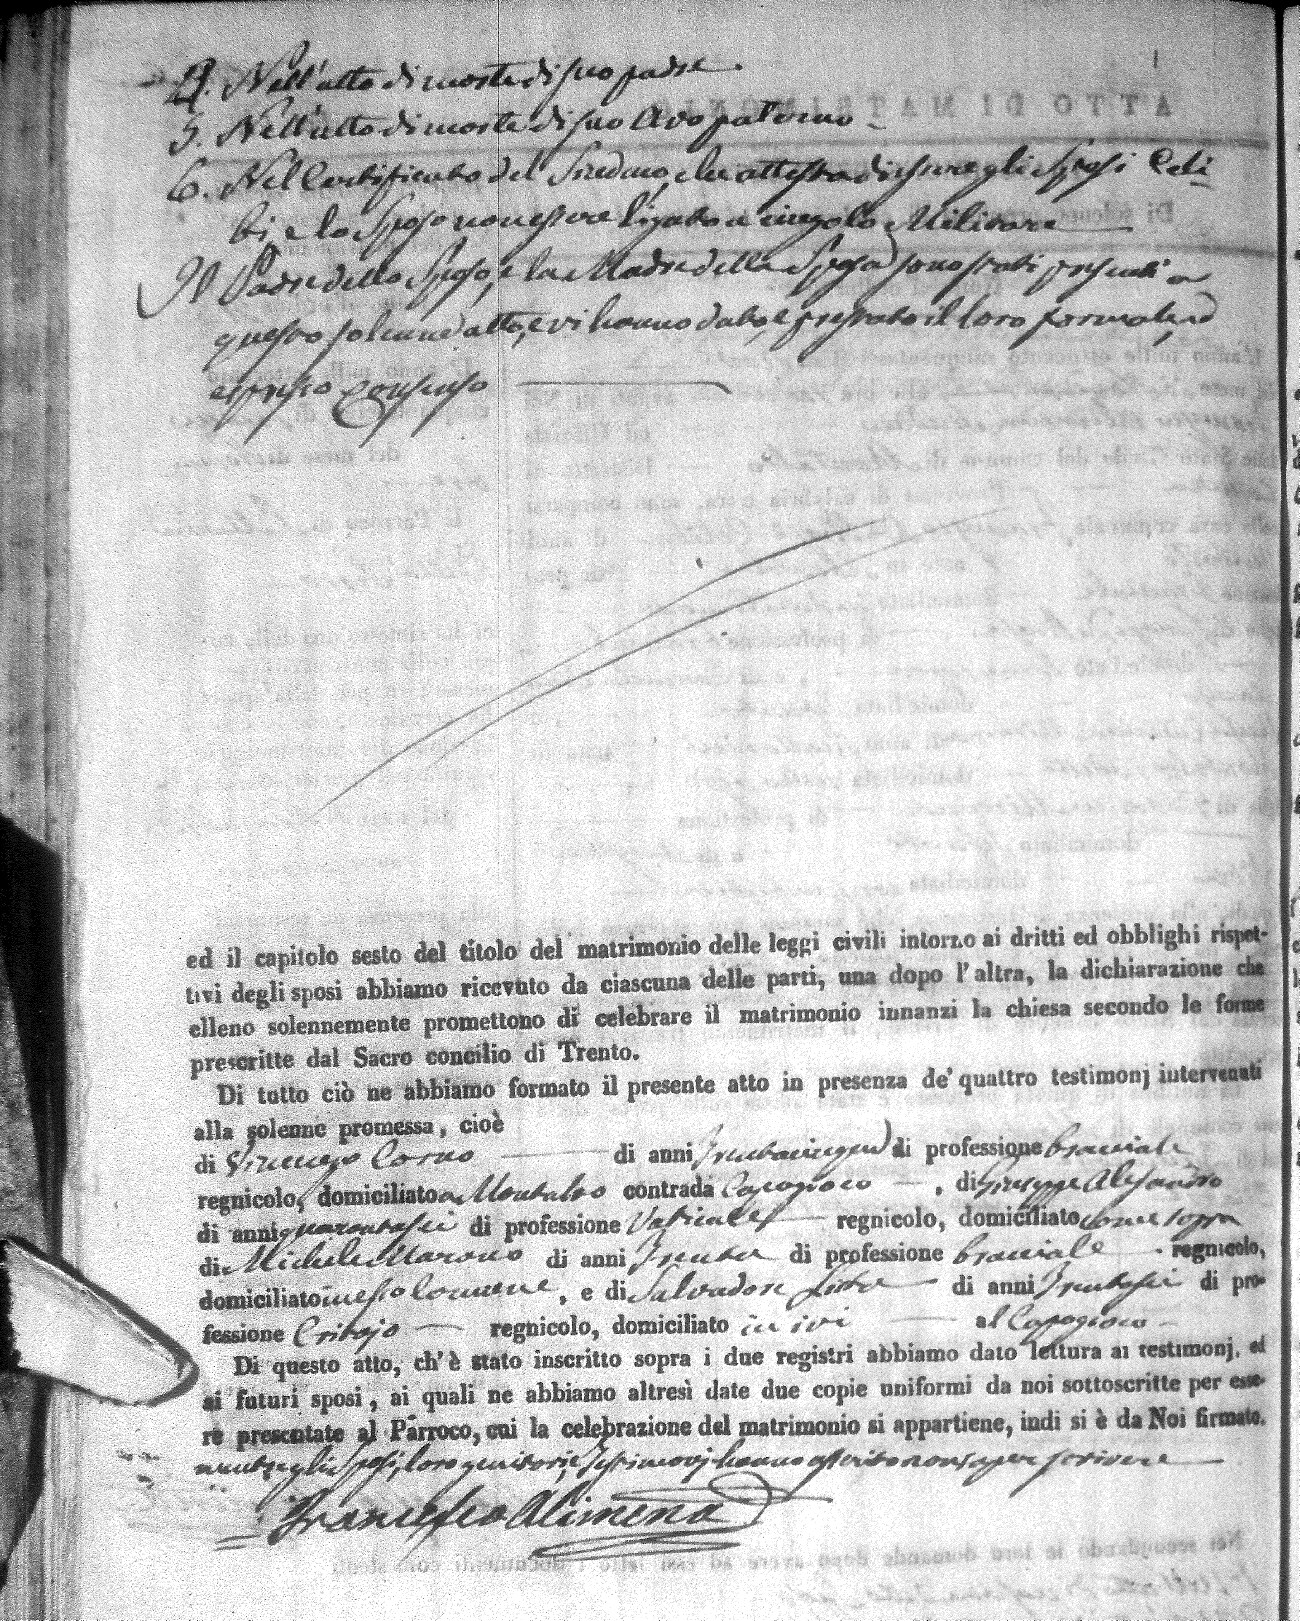 4. Nell'atto di morte di suo padre.
5. Nell'atto di morte di suo Avo paterno
6. Nel Certificato del Sindaco, che attesta di essere gli Sposi Celi-
bi, e lo Sposo non essere ligato a cingolo Militare
Il Padre dello Sposo, e la Madre della Sposa sono stati presenti a
questo solenne atto, e vi hanno dato, e prestato il loro formale, ed
espresso consenso
ed il capitolo sesto del titolo del matrimonio delle leggi civili intorno ai dritti ed obblighi rispet-
tivi degli sposi abbiamo ricevuto da ciascuna delle parti, una dopo l'altra, la dichiarazione che
elleno solennemente promettono di celebrare il matrimonio innanzi la chiesa secondo le forme
prescritte dal Sacro concilio di Trento.
Di tutto ciò ne abbiamo formato il presente atto in presenza de' quattro testimonj intervenuti
alla solenne promessa, cioè
di Vincenzo Corno di anni trentacinque di professione bracciale
regnicolo, domiciliato a Montalto contrada Capogioco, di Giuseppe Alesandro
di anni quarantasei di professione Vaticale regnicolo, domiciliato come sopra
di Michele Marono di anni trenta di professione bracciale regnicolo,
domiciliato in esso Comune, e di Salvadore di anni trentasei di pro-
fessione Cribojo regnicolo, domiciliato in ivi al Capogioco
Di questo atto, ch'è stato inscritto sopra i due registri abbiamo dato lettura ai testimonj, ed
ai futuri sposi, ai quali ne abbiamo altresì date due copie uniformi da noi sottoscritte per esse-
re presentate al Parroco, cui la celebrazione del matrimonio si appartiene, indi si è da Noi firmato,
mentre gli Sposi, loro genitori, e Testimonj hanno asserito non saper scrivere
Francesco Alimena